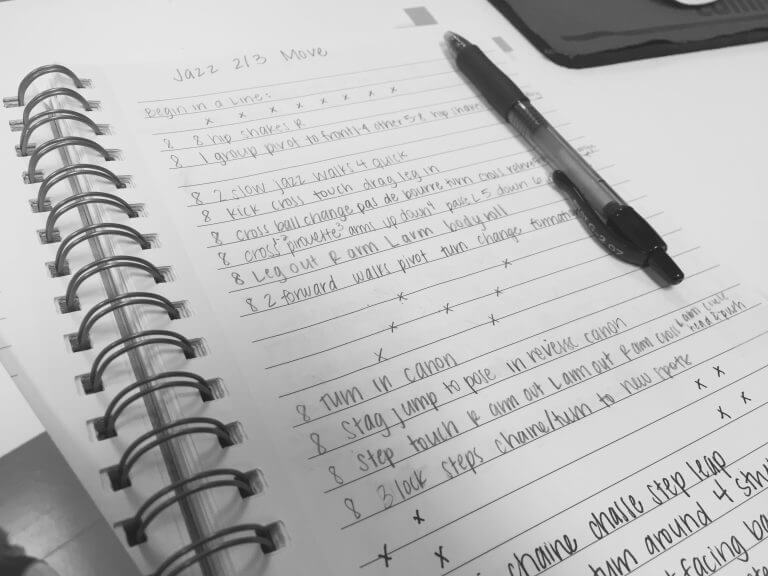 Jazz 2/3 Move
Begin in a line:
x x x x x x x x
8 8 hip shakes R
8 1 group pivot to front 1-4 other 5-8 hip shake
8 2 slow jazz walks 4 quick
8 kick cross touch drag leg in
8 cross ball change pas de bourre turn cross
8 cross 1-2 pirouette 3 arms up down 4 pose L 5 down 6
8 Leg out R arm L arm body roll
8 2 forward walks pivot turn change
x x
x x x
x
8 Turn in canon
8 Stag jump to pose in reverse canon
8 Step touch R arm out L arm out R arm cross L arm circle head down
8 3 lock steps chaine/turn to new spots
x x
x x x
x x
chaine chasse step leap
turn around 4
facing